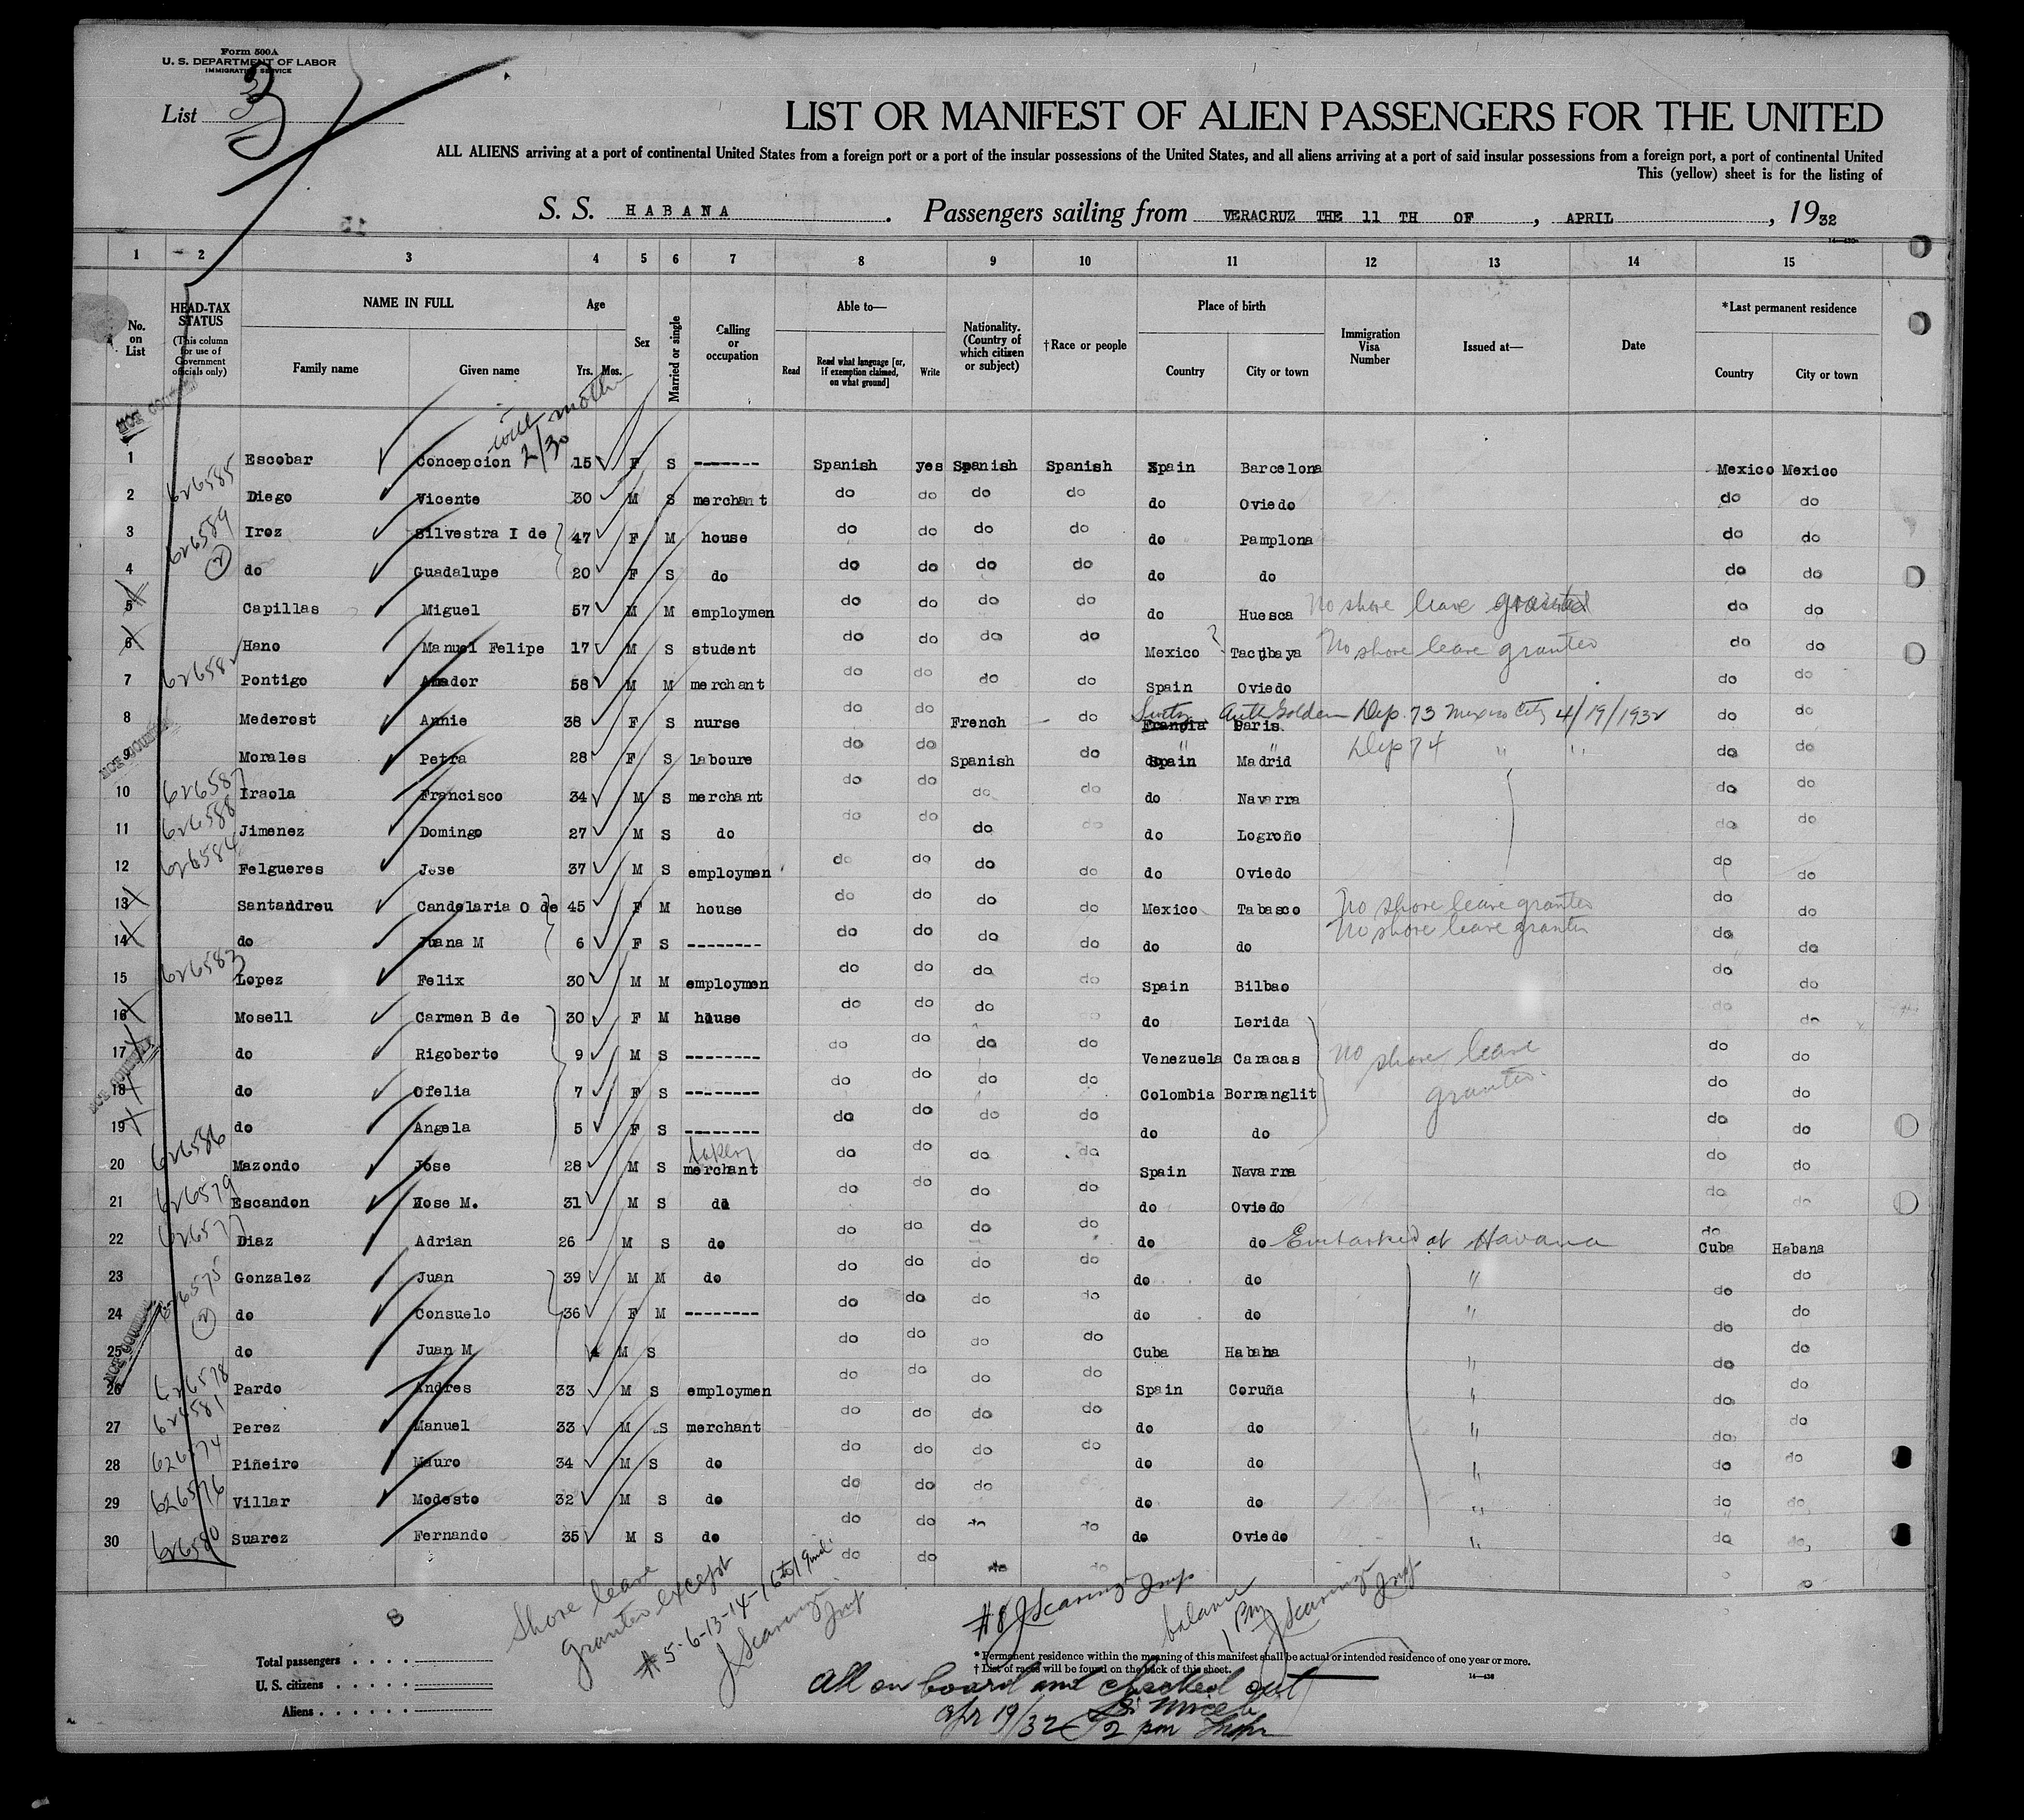 Form 500A
U. S. DEPARTMENT OF LABOR
IMMIGRATION SERVICE
List 3
LIST OR MANIFEST OF ALIEN PASSENGERS FOR THE UNITED
ALL ALIENS arriving at a port of continental United States from a foreign port or a port of the insular possessions of the United States, and all aliens arriving at a port of said insular possessions from a foreign port, a port of continental United
This (yellow) sheet is for the listing of
S. S. HABANA. Passengers sailing from VERACRUZ THE 11 TH OF, APRIL, 1932
1 2 3 4 5 6 7 8 9 10 11 12 13 14 15
No. on List
HEAD-TAX STATUS (This column for use of Government officials only)
NAME IN FULL Family name Given name
Age Yrs. Mos.
Sex
Married or single
Calling or occupation
Able to— Read Read what language [or, if exemption claimed, on what ground] Write
Nationality. (Country of which citizen or subject)
†Race or people
Place of birth Country City or town
Immigration Visa Number
Issued at—
Date
*Last permanent residence Country City or town
with mother 2/30
1 Escobar Concepcion 15 F S ------- Spanish yes Spanish Spanish Spain Barcelona Mexico Mexico
2 626585 Diego Vicente 30 M S merchant do do do do do Oviedo do do
3 626589 Iroz Silvestra I de 47 F M house do do do do do Pamplona do do
4 (2) do Guadalupe 20 F S do do do do do do do do do
5 Capillas Miguel 57 M M employmen do do do do do Huesca No shore leave granted do do
6 Hano Manuel Felipe 17 M S student do do do do Mexico ? Tacubaya No shore leave granted do do
7 626582 Pontigo Amador 58 M M merchant do do do do Spain Oviedo do do
8 Mederost Annie 38 F S nurse do do French do Francia Paris Dep. 73 Mexico City 4/19/1932 do do
9 Morales Petra 28 F S laboure do do Spanish do Spain Madrid Dep 74 " " do do
10 626587 Iraola Francisco 34 M S merchant do do do do do Navarra do do
11 626588 Jimenez Domingo 27 M S do do do do do do Logroño do do
12 626584 Felgueres Jose 37 M S employmen do do do do do Oviedo do do
13 Santandreu Candelaria O de 45 F M house do do do do Mexico Tabasco No shore leave granted do do
14 do Juana M 6 F S -------- do do do do do do No shore leave granted do do
15 626583 Lopez Felix 30 M M employmen do do do do Spain Bilbao do do
16 Mosell Carmen B de 30 F M house do do do do Lerida do do
17 do Rigoberto 9 M S -------- do do do do Venezuela Caracas No shore leave do do
18 do Ofelia 7 F S -------- do do do do Colombia Borranglit granted. do do
19 do Angela 5 F S -------- do do do do do do do do
20 626586 Mazondo Jose 28 M S merchant do do do do Spain Navarra do do
21 626579 Escandon Jose M. 31 M S do do do do do do Oviedo do do
22 626577 Diaz Adrian 26 M S do do do do do do do Embarked at Havana do Cuba Habana
23 626575 Gonzalez Juan 39 M M do do do do do do do " do do
24 (2) do Consuelo 36 F M -------- do do do do do do " do do
25 do Juan M 4 M S do do do do Cuba Habana " do do
26 626578 Pardo Andres 33 M S employmen do do do do Spain Coruña " do do
27 626581 Perez Manuel 33 M S merchant do do do do do do " do do
28 626574 Piñeiro Mauro 34 M S do do do do do do do " do do
29 626576 Villar Modesto 32 M S do do do do do do " do do
30 626580 Suarez Fernando 35 M S do do do do do do Oviedo " do do
do do do do
8
Shore leave
granted except
#5-6-13-14-16 to 19 incl.
J Scaringi Insp
#8 J Scaringi Insp
balance 1 Pm J Scaringi Insp
Total passengers
U. S. citizens
Aliens
*Permanent residence within the meaning of this manifest shall be actual or intended residence of one year or more.
†List of races will be found on the back of this sheet.
All on board and checked out
Apr 19/32 2 pm